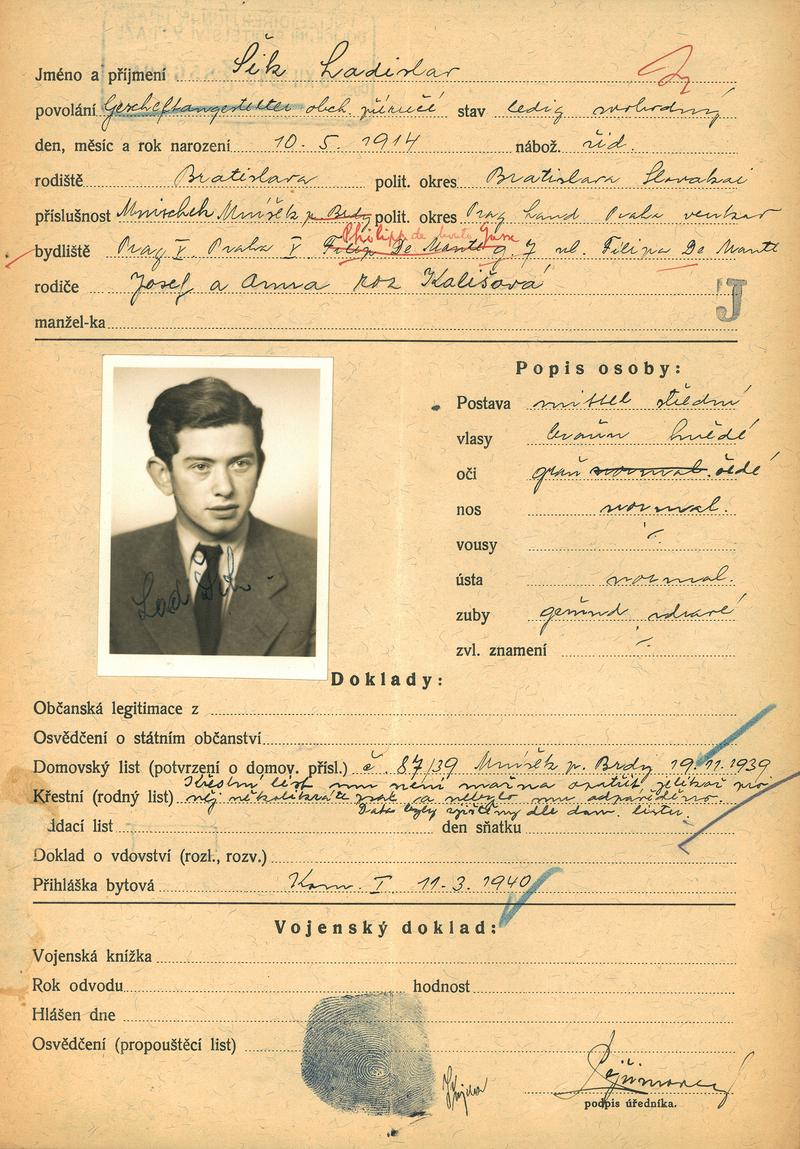 Jméno a příjmení Šik Ladislav
povolání Gescheftangestellter obch. příručí stav ledig svobodný
den, měsíc a rok narození 10. 5. 1914 nábož. žid.
rodiště Bratislava polit. okres Bratislava Slovakei
příslušnost Mnischek Mníšek p. Brdy polit. okres Prag Land Praha venkov
Philipp de Monte Gasse
bydliště Prag I. Praha I Filip De Monte g. 7 ul. Filipa De Monte
rodiče Josef a Anna roz Kališová
J
manžel-ka
Popis osoby:
Postava mittel střední
vlasy braun hnědé
oči grau normal. šedé
nos normal.
vousy ·/.
ústa normal.
zuby gesund zdravé
zvl. znamení ·/.
Lad Šik
Doklady:
Občanská legitimace z
Osvědčení o státním občanství
Domovský list (potvrzení o domov. přísl.) č. 87/39 Mníšek p. Brdy 19. 11. 1939
Křestní list mu není možno opatřit jelikož pro
Křestní (rodný list) něj několikráte psal a nebylo mu odpověděno.
Data byly zjištěny dle dom. listu.
ddací list den sňatku
Doklad o vdovství (rozl., rozv.)
Přihláška bytová Kom. I. 11. 3. 1940
Vojenský doklad:
Vojenská knížka
Rok odvodu hodnost
Hlášen dne
Osvědčení (propouštěcí list)
podpis úředníka.